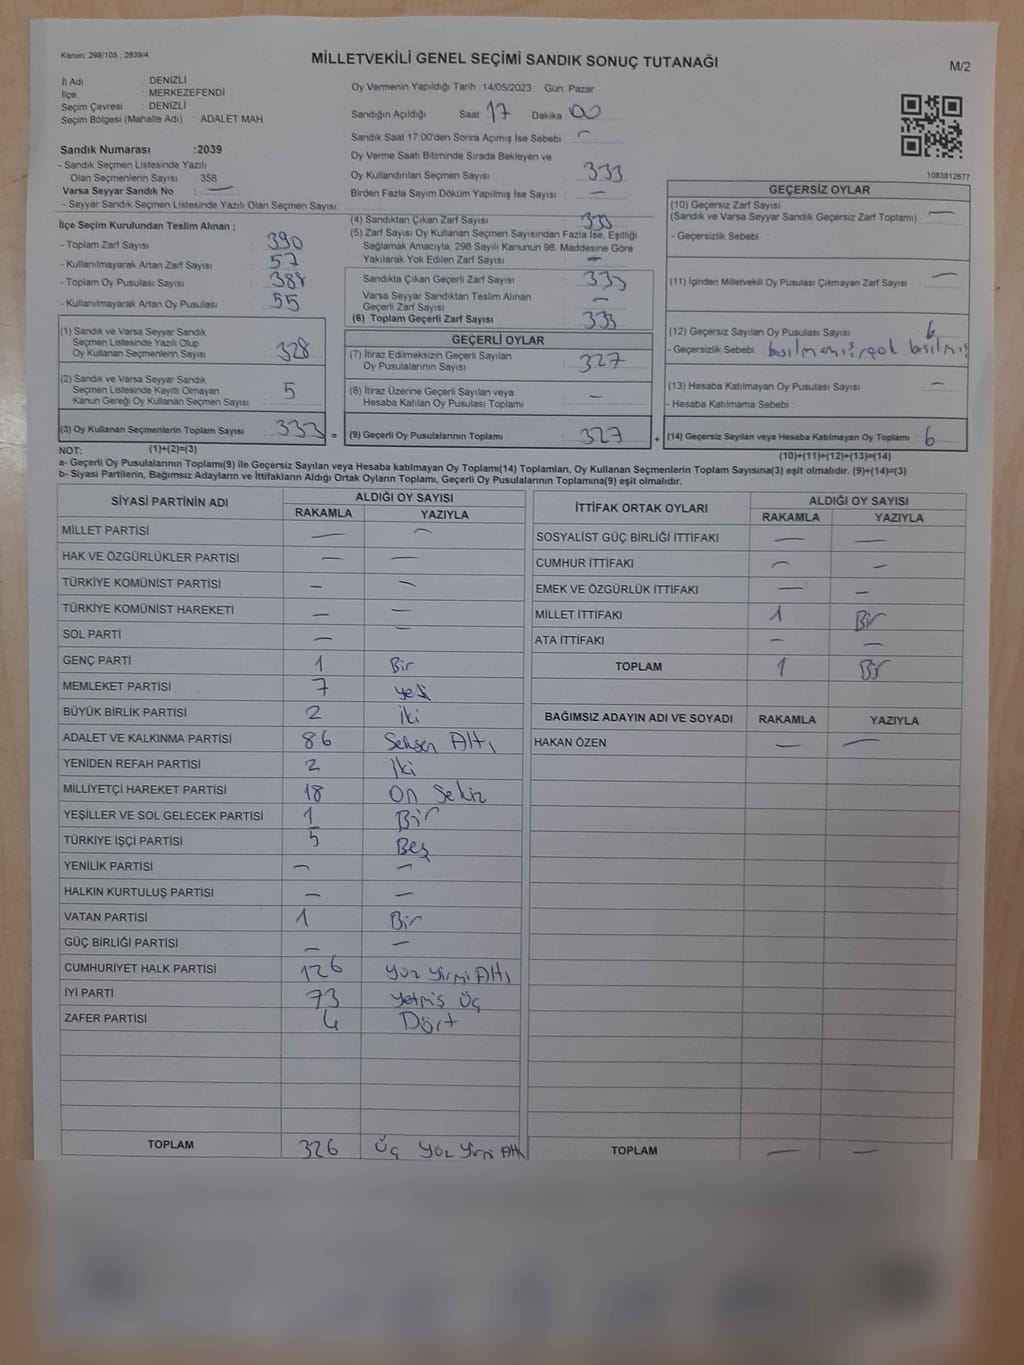 Kanun: 298/105 , 2839/4
MİLLETVEKİLİ GENEL SEÇİMİ SANDIK SONUÇ TUTANAĞI
M/2
İl Adı : DENİZLİ
İlçe : MERKEZEFENDİ
Seçim Çevresi : DENİZLİ
Seçim Bölgesi (Mahalle Adı) : ADALET MAH.
Sandık Numarası :2039
- Sandık Seçmen Listesinde Yazılı
Olan Seçmenlerin Sayısı 358
Varsa Seyyar Sandık No : —
- Seyyar Sandık Seçmen Listesinde Yazılı Olan Seçmen Sayısı:
Oy Vermenin Yapıldığı Tarih : 14/05/2023 Gün: Pazar
Sandığın Açıldığı Saat 17 Dakika : 00
Sandık Saat 17:00'den Sonra Açımış İse Sebebi : —
Oy Verme Saati Bitiminde Sırada Bekleyen ve
Oy Kullandırılan Seçmen Sayısı : 333
Birden Fazla Sayım Döküm Yapılmış İse Sayısı : —
1083812677
İlçe Seçim Kurulundan Teslim Alınan ;
- Toplam Zarf Sayısı : 390
- Kullanılmayarak Artan Zarf Sayısı : 57
- Toplam Oy Pusulası Sayısı : 388
- Kullanılmayarak Artan Oy Pusulası : 55
(1) Sandık ve Varsa Seyyar Sandık
Seçmen Listesinde Yazılı Olup
Oy Kullanan Seçmenlerin Sayısı : 328
(2) Sandık ve Varsa Seyyar Sandık
Seçmen Listesinde Kayıtlı Olmayan
Kanun Gereği Oy Kullanan Seçmen Sayısı : 5
(3) Oy Kullanan Seçmenlerin Toplam Sayısı : 333 =
(1)+(2)=(3)
(4) Sandıktan Çıkan Zarf Sayısı : 333
(5) Zarf Sayısı Oy Kullanan Seçmen Sayısından Fazla İse, Eşitliği
Sağlamak Amacıyla, 298 Sayılı Kanunun 98. Maddesine Göre
Yakılarak Yok Edilen Zarf Sayısı : —
Sandıkta Çıkan Geçerli Zarf Sayısı : 333
Varsa Seyyar Sandıktan Teslim Alınan
Geçerli Zarf Sayısı : —
(6) Toplam Geçerli Zarf Sayısı : 333
GEÇERLİ OYLAR
(7) İtiraz Edilmeksizin Geçerli Sayılan
Oy Pusulalarının Sayısı : 327
(8) İtiraz Üzerine Geçerli Sayılan veya
Hesaba Katılan Oy Pusulası Toplamı : —
(9) Geçerli Oy Pusulalarının Toplamı : 327 +
GEÇERSİZ OYLAR
(10) Geçersiz Zarf Sayısı
(Sandık ve Varsa Seyyar Sandık Geçersiz Zarf Toplamı) : —
- Geçersizlik Sebebi :
(11) İçinden Milletvekili Oy Pusulası Çıkmayan Zarf Sayısı : —
(12) Geçersiz Sayılan Oy Pusulası Sayısı : 6
- Geçersizlik Sebebi : basılmamış, çok basılmış
(13) Hesaba Katılmayan Oy Pusulası Sayısı : —
- Hesaba Katılmama Sebebi :
(14) Geçersiz Sayılan veya Hesaba Katılmayan Oy Toplamı : 6
(10)+(11)+(12)+(13)=(14)
NOT:
a- Geçerli Oy Pusulalarının Toplamı(9) ile Geçersiz Sayılan veya Hesaba katılmayan Oy Toplamı(14) Toplamları, Oy Kullanan Seçmenlerin Toplam Sayısına(3) eşit olmalıdır. (9)+(14)=(3)
b- Siyasi Partilerin, Bağımsız Adayların ve İttifakların Aldığı Ortak Oyların Toplamı, Geçerli Oy Pusulalarının Toplamına(9) eşit olmalıdır.
SİYASİ PARTİNİN ADI ALDIĞI OY SAYISI
RAKAMLA YAZIYLA
MİLLET PARTİSİ — —
HAK VE ÖZGÜRLÜKLER PARTİSİ — —
TÜRKİYE KOMÜNİST PARTİSİ — —
TÜRKİYE KOMÜNİST HAREKETİ — —
SOL PARTİ — —
GENÇ PARTİ 1 Bir
MEMLEKET PARTİSİ 7 yedi
BÜYÜK BİRLİK PARTİSİ 2 İki
ADALET VE KALKINMA PARTİSİ 86 Seksen Altı
YENİDEN REFAH PARTİSİ 2 İki
MİLLİYETÇİ HAREKET PARTİSİ 18 On Sekiz
YEŞİLLER VE SOL GELECEK PARTİSİ 1 Bir
TÜRKİYE İŞÇİ PARTİSİ 5 Beş
YENİLİK PARTİSİ — —
HALKIN KURTULUŞ PARTİSİ — —
VATAN PARTİSİ 1 Bir
GÜÇ BİRLİĞİ PARTİSİ — —
CUMHURİYET HALK PARTİSİ 126 Yüz Yirmi Altı
İYİ PARTİ 73 Yetmiş Üç
ZAFER PARTİSİ 4 Dört
TOPLAM 326 Üç Yüz Yirmi Altı
İTTİFAK ORTAK OYLARI ALDIĞI OY SAYISI
RAKAMLA YAZIYLA
SOSYALİST GÜÇ BİRLİĞİ İTTİFAKI — —
CUMHUR İTTİFAKI — —
EMEK VE ÖZGÜRLÜK İTTİFAKI — —
MİLLET İTTİFAKI 1 Bir
ATA İTTİFAKI — —
TOPLAM 1 Bir
BAĞIMSIZ ADAYIN ADI VE SOYADI RAKAMLA YAZIYLA
HAKAN ÖZEN — —
TOPLAM — —